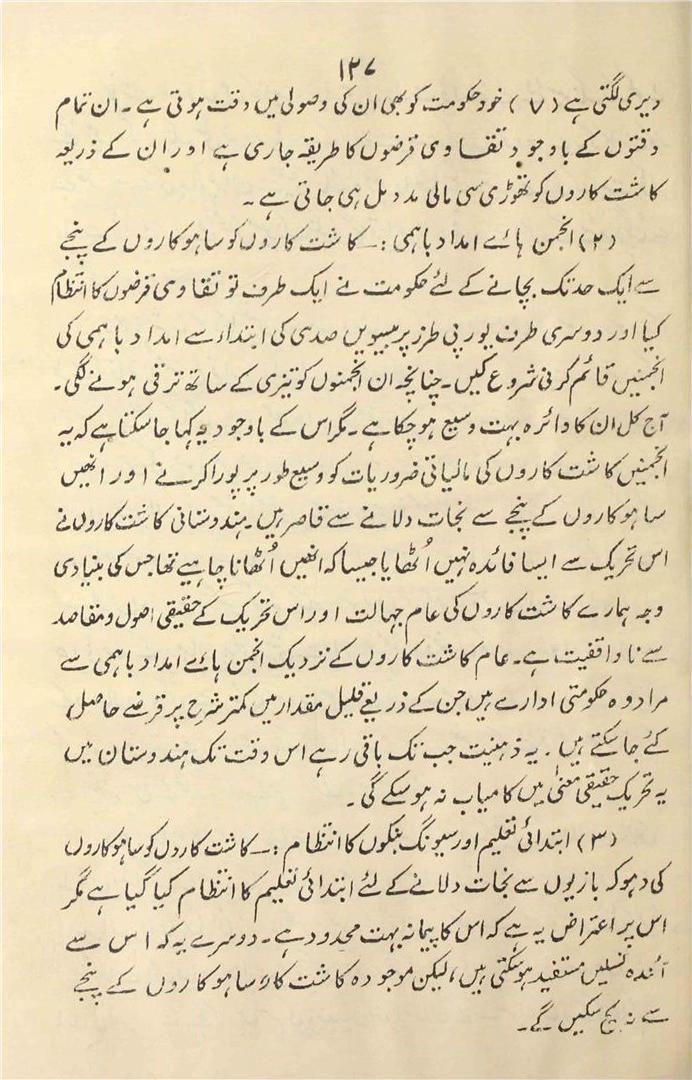 ۱۲۷
دیری لگتی ہے (۷) خود حکومت کو بھی ان کی وصولی میں دقت ہوتی ہے۔ ان تمام
دقتوں کے باوجود تقاوی قرضوں کا طریقہ جاری ہے اور ان کے ذریعہ
کاشت کاروں کو تھوڑی سی مالی مدد مل ہی جاتی ہے۔
(۲) انجمن ہائے امداد باہمی :۔ کاشت کاروں کو ساہوکاروں کے پنجے
سے ایک حد تک بچانے کے لئے حکومت نے ایک طرف تو تقاوی قرضوں کا انتظام
کیا اور دوسری طرف یورپی طرز پر بیسویں صدی کی ابتداء سے امداد باہمی کی
انجمنیں قائم کرنی شروع کیں۔ چنانچہ ان انجمنوں کو تیزی کے ساتھ ترقی ہونے لگی۔
آج کل ان کا دائرہ بہت وسیع ہو چکا ہے۔ مگر اس کے باوجود یہ کہا جا سکتا ہے کہ یہ
انجمنیں کاشت کاروں کی مالیاتی ضروریات کو وسیع طور پر پورا کرنے اور انھیں
ساہوکاروں کے پنجے سے نجات دلانے سے قاصر ہیں۔ ہندوستانی کاشت کاروں نے
اس تحریک سے ایسا فائدہ نہیں اُٹھایا جیسا کہ انھیں اُٹھانا چاہیے تھا جس کی بنیادی
وجہ ہمارے کاشت کاروں کی عام جہالت اور اس تحریک کے حقیقی اصول و مقاصد
سے ناواقفیت ہے۔ عام کاشت کاروں کے نزدیک انجمن ہائے امداد باہمی سے
مراد وہ حکومتی ادارے ہیں جن کے ذریعے قلیل مقدار میں کمتر شرح پر قرضے حاصل
کئے جا سکتے ہیں۔ یہ ذہنیت جب تک باقی رہے اس وقت تک ہندوستان میں
یہ تحریک حقیقی معنیٰ میں کامیاب نہ ہو سکے گی۔
(۳) ابتدائی تعلیم اور سیونگ بنکوں کا انتظام :۔ کاشت کاروں کو ساہوکاروں
کی دہوکہ بازیوں سے نجات دلانے کے لئے ابتدائی تعلیم کا انتظام کیا گیا ہے مگر
اس پر اعتراض یہ ہے کہ اس کا پیمانہ بہت محدود ہے۔ دوسرے یہ کہ اس سے
آئندہ نسلیں مستفید ہو سکتی ہیں، لیکن موجودہ کاشت کار ساہوکاروں کے پنجے
سے نہ بچ سکیں گے۔